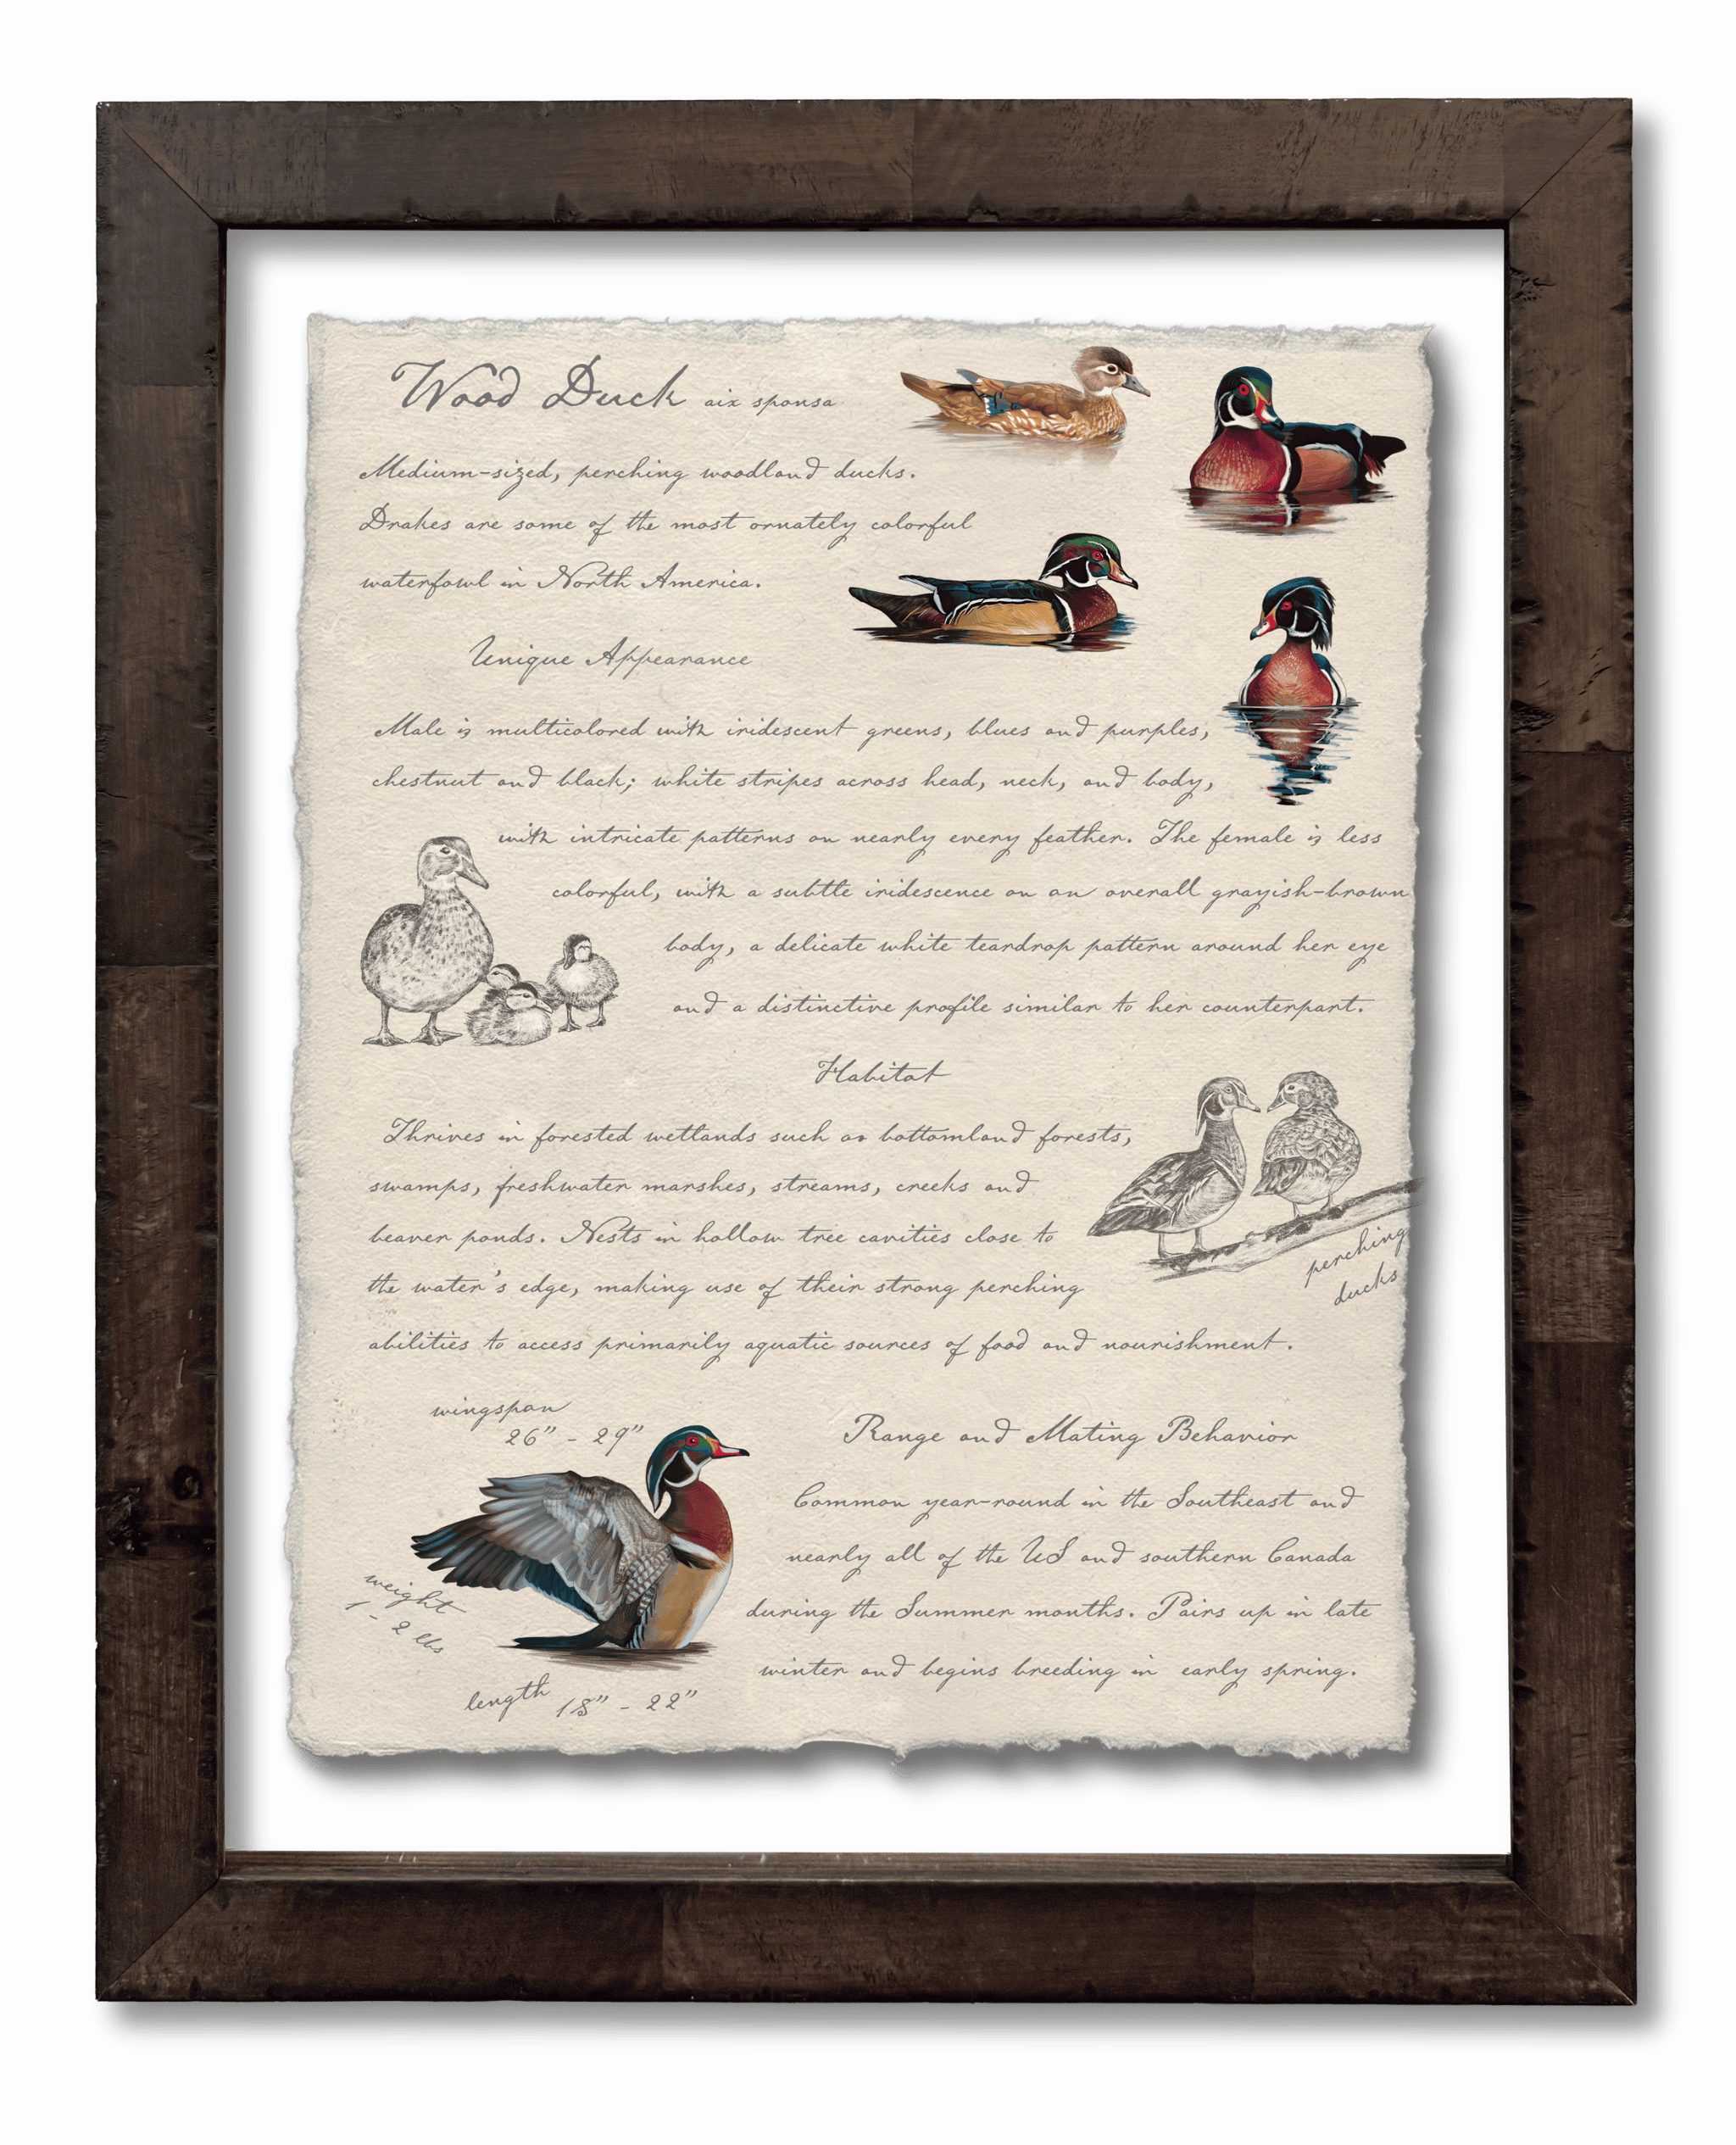 Wood Duck aix sponsa
Medium-sized, perching woodland ducks.
Drakes are some of the most ornately colorful
waterfowl in North America.
Unique Appearance
Male is multicolored with iridescent greens, blues and purples,
chestnut and black; white stripes across head, neck, and body,
with intricate patterns on nearly every feather. The female is less
colorful, with a subtle iridescence on an overall grayish-brown
body, a delicate white teardrop pattern around her eye
and a distinctive profile similar to her counterpart.
Habitat
Thrives in forested wetlands such as bottomland forests,
swamps, freshwater marshes, streams, creeks and
beaver ponds. Nests in hollow tree cavities close to
the water's edge, making use of their strong perching
abilities to access primarily aquatic sources of food and nourishment.
perching
ducks
wingspan
26" - 29"
weight
1 - 2 lbs
length 18" - 22"
Range and Mating Behavior
Common year-round in the Southeast and
nearly all of the US and southern Canada
during the Summer months. Pairs up in late
winter and begins breeding in early spring.